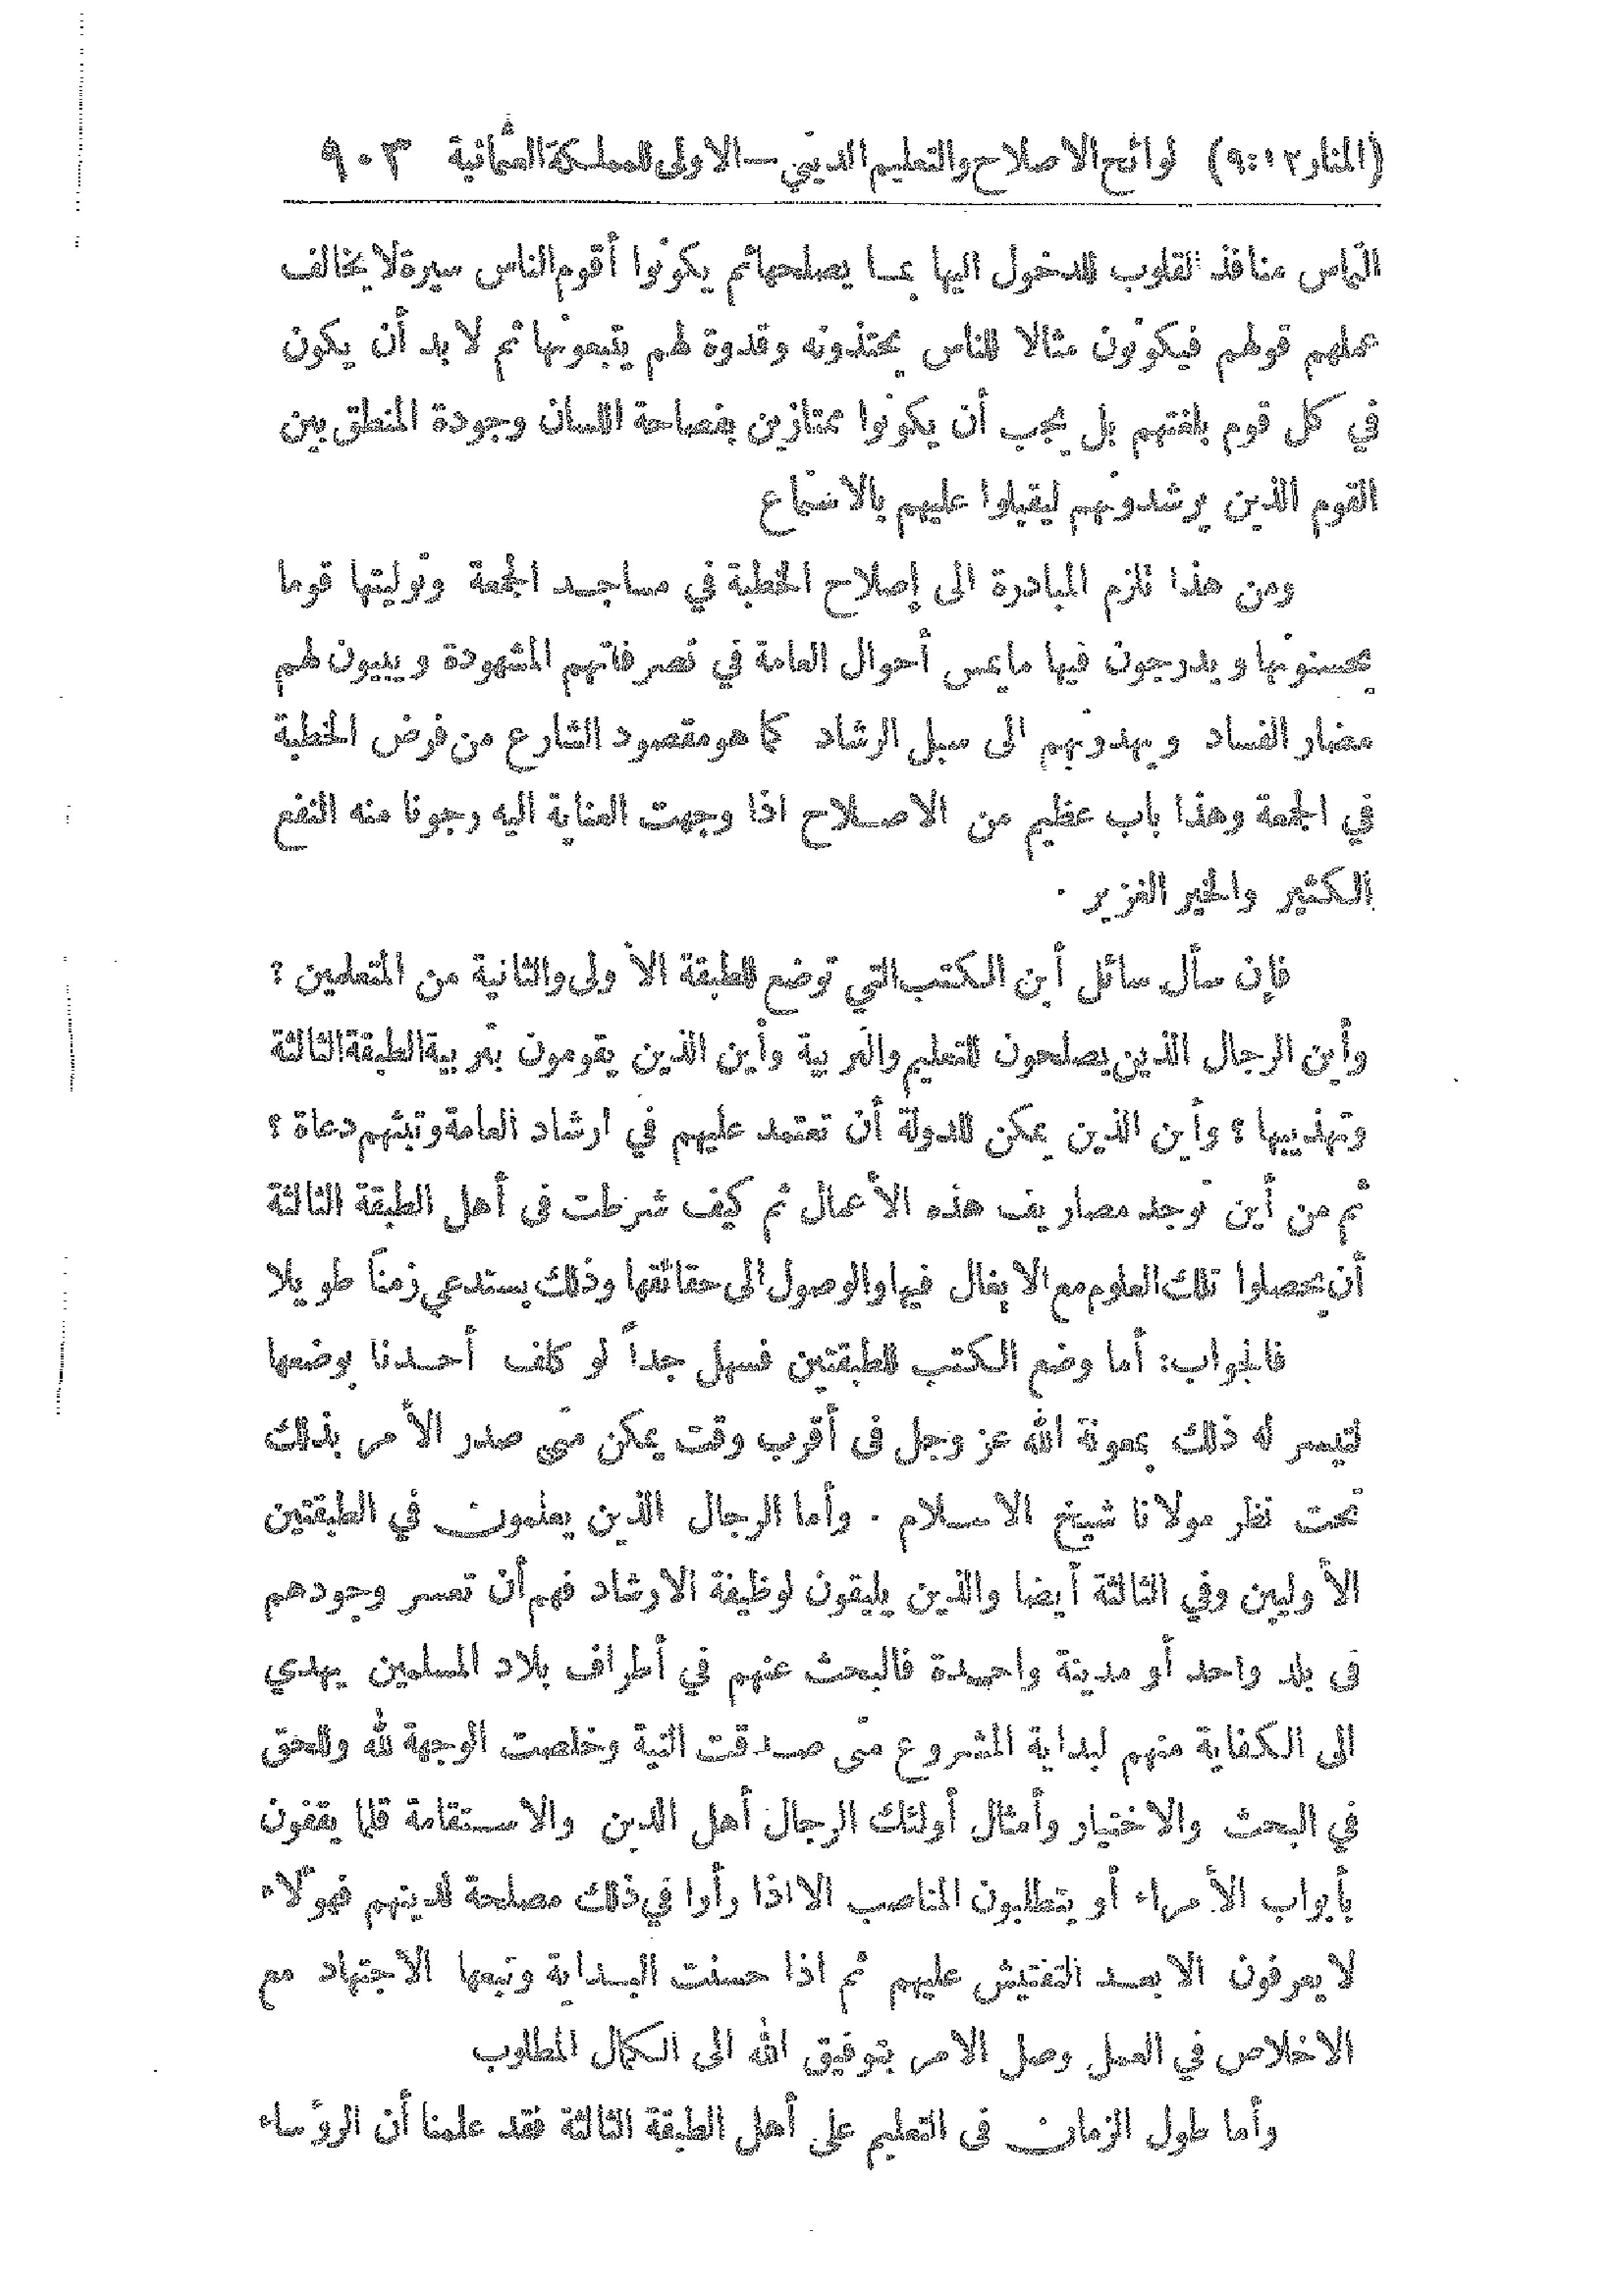 (المنار ١٢:٩) لوائح الاصلاح والتعليم الديني — الاولى للمملكة العثمانية ٩٠٣
التماس منافذ القلوب للدخول اليها بما يصلحها ثم يكونوا أقوم الناس سيرة لا يخالف
عملهم قولهم فيكونون مثالا للناس يحتذونه وقدوة لهم يتبعونها ثم لا بد أن يكون
في كل قوم بلغتهم بل يجب أن يكونوا ممتازين بفصاحة اللسان وجودة المنطق بين
القوم الذين يرشدونهم ليقبلوا عليهم بالاستماع
ومن هذا تلزم المبادرة الى إصلاح الخطبة في مساجد الجمعة وتوليتها قوما
يحسنونها ويدرجون فيها ما يمس أحوال العامة في تصرفاتهم المشهودة ويبينون لهم
مضار الفساد ويهدونهم الى سبل الرشاد كما هو مقصود الشارع من فرض الخطبة
في الجمعة وهذا باب عظيم من الاصلاح اذا وجهت العناية اليه رجونا منه النفع
الكثير والخير الغزير .
فإن سأل سائل أين الكتب التي توضع للطبقة الأولى والثانية من المتعلمين ؟
وأين الرجال الذين يصلحون للتعليم والتربية وأين الذين يقومون بتربية الطبقة الثالثة
وتهذيبها ؟ وأين الذين يمكن للدولة أن تعتمد عليهم في ارشاد العامة وتبثهم دعاة ؟
ثم من أين توجد مصاريف هذه الأعمال ثم كيف شرطت فى أهل الطبقة الثالثة
أن يحصلوا تلك العلوم مع الايغال فيها والوصول الى حقائقها وذلك يستدعي زمناً طويلا
فالجواب: أما وضع الكتب للطبقتين فسهل جداً لو كلف أحدنا بوضعها
لتيسر له ذلك بمعونة الله عز وجل فى أقرب وقت يمكن متى صدر الأمر بذلك
تحت نظر مولانا شيخ الاسلام . وأما الرجال الذين يعلمون في الطبقتين
الأوليين وفي الثالثة أيضا والذين يليقون لوظيفة الارشاد فهم أن تعسر وجودهم
فى بلد واحد أو مدينة واحدة فالبحث عنهم في أطراف بلاد المسلمين يهدي
الى الكفاية منهم لبداية المشروع متى صدقت النية وخلصت الوجهة لله وللحق
في البحث والاختيار وأمثال أولئك الرجال أهل الدين والاستقامة قلما يقفون
بأبواب الأمراء أو يتطلبون المناصب الا اذا رأوا في ذلك مصلحة لدينهم فهؤلاء
لا يعرفون الا بعد التفتيش عليهم ثم اذا حسنت البداية وتبعها الاجتهاد مع
الاخلاص في العمل وصل الامر بتوفيق الله الى الكمال المطلوب
وأما طول الزمان فى التعليم على أهل الطبقة الثالثة فقد علمنا أن الرؤساء